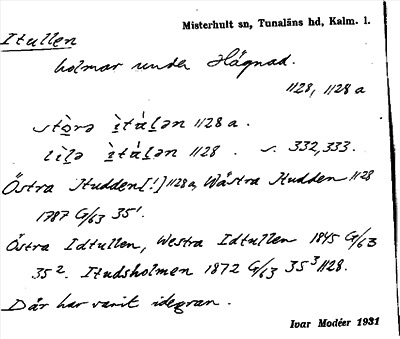 Misterhult sn, Tunaläns hd, Kalm. l.
Itullen
holmar under Hågnad.
1128, 1128 a
stòrə ìtáḷən 1128 a.
lìlə ìtáḷən 1128 . s. 332,333.
Östra Itudden [!] 1128 a, Wästra Itudden 1128
1787 G/63 35¹.
Östra Idtullen, Westra Idtullen 1845 G/63
35². Itudsholmen 1872 G/63 35³ 1128.
Där har varit idegran.
Ivar Modéer 1931